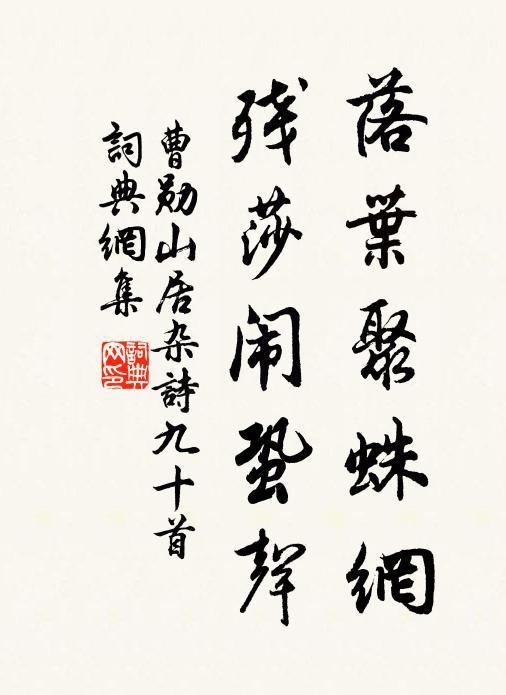 落葉聚蛛網
残莎闹蛩聲
曹勛山居杂詩九十首
詞典網集
詞典網印